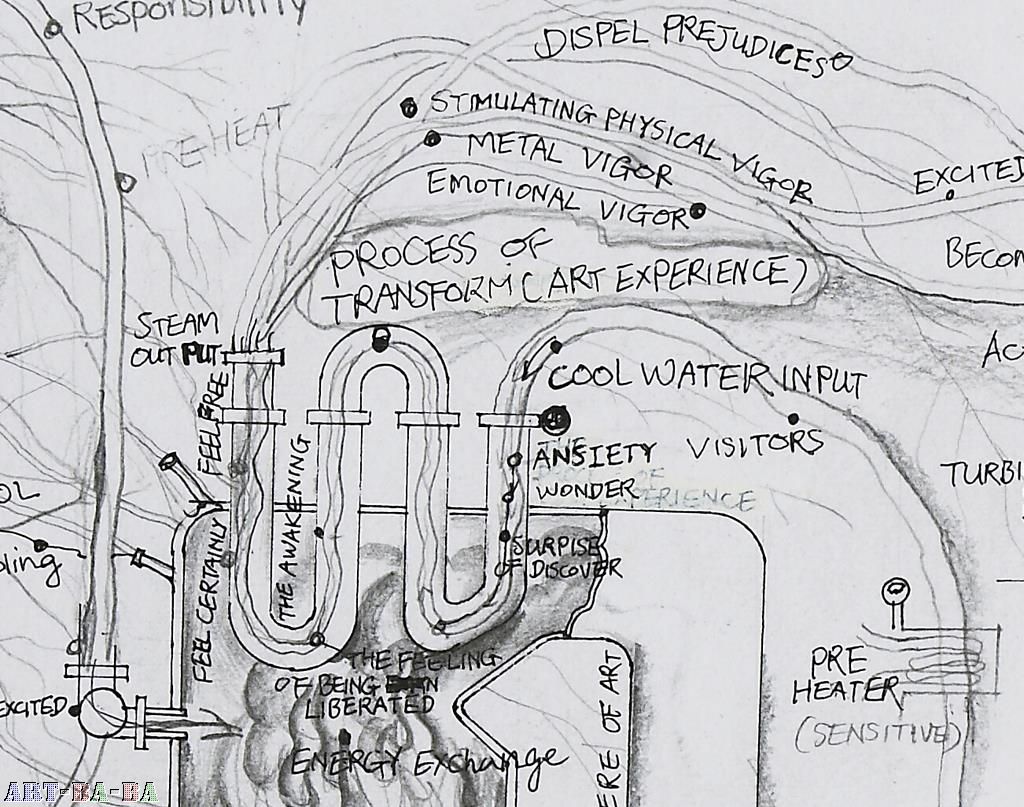 RESPONSIBILITY
DISPEL PREJUDICES
STIMULATING PHYSICAL VIGOR
PRE HEAT
METAL VIGOR
EXCITED
EMOTIONAL VIGOR
PROCESS OF
TRANSFORM (ART EXPERIENCE)
BECOM
STEAM
OUT PUT
AC
COOL WATER INPUT
FEEL FREE
VISITORS
THE AWAKENING
ANSIETY
WONDER
ERIENCE
TURBI
OL
SURPISE
OF DISCOVER
ling
FEEL CERTAINLY
THE FEELING
OF BEING
LIBERATED
PRE
HEATER
(SENSITIVE)
EXCITED
ENERGY EXchange
ERE OF ART
ART-BA-BA